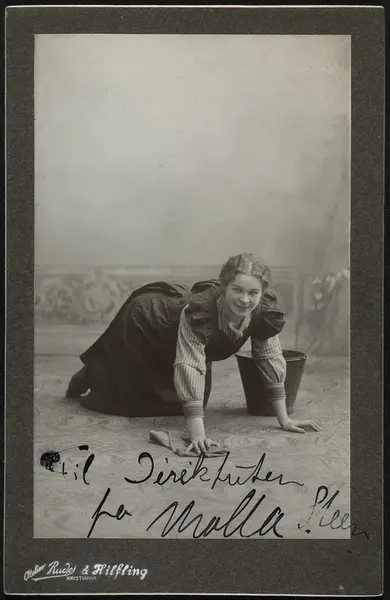 Til Direktuten
fra Molla Steen
Atelier Rude & Hilfling
KRISTIANIA